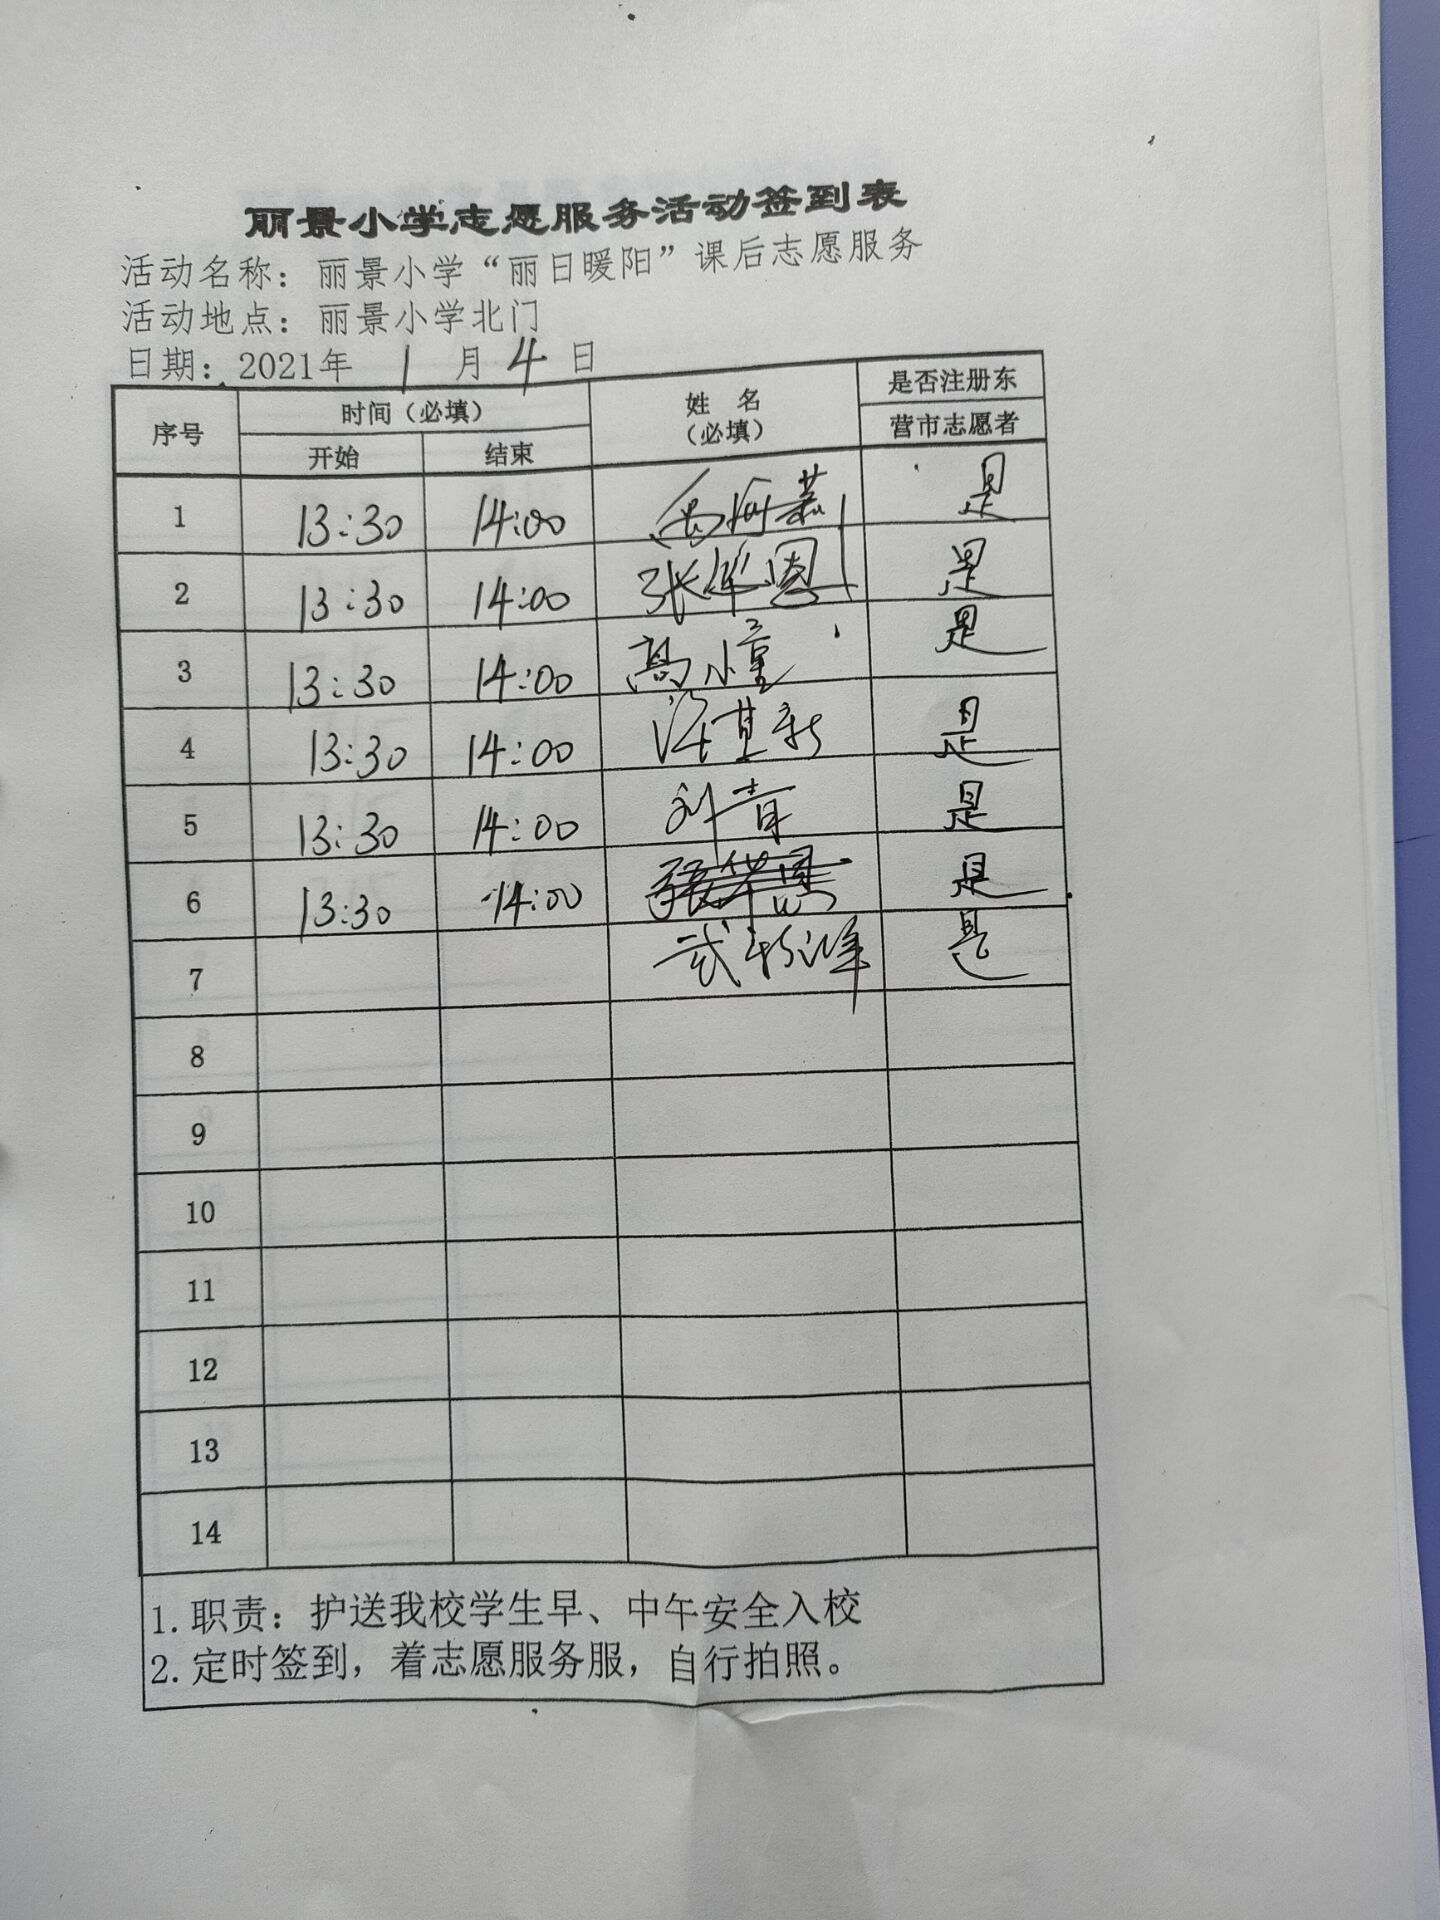 丽景小学志愿服务活动签到表
活动名称：丽景小学“丽日暖阳”课后志愿服务
活动地点：丽景小学北门
日期：2021年 1 月 4 日
序号 时间（必填） 姓 名（必填） 是否注册东营市志愿者
开始 结束
1 13:30 14:00 是
2 13:30 14:00 张华恩 是
3 13:30 14:00 高小童 是
4 13:30 14:00 是
5 13:30 14:00 刘青 是
6 13:30 14:00 张华恩 是
7 武 是
8
9
10
11
12
13
14
1.职责：护送我校学生早、中午安全入校
2.定时签到，着志愿服务服，自行拍照。